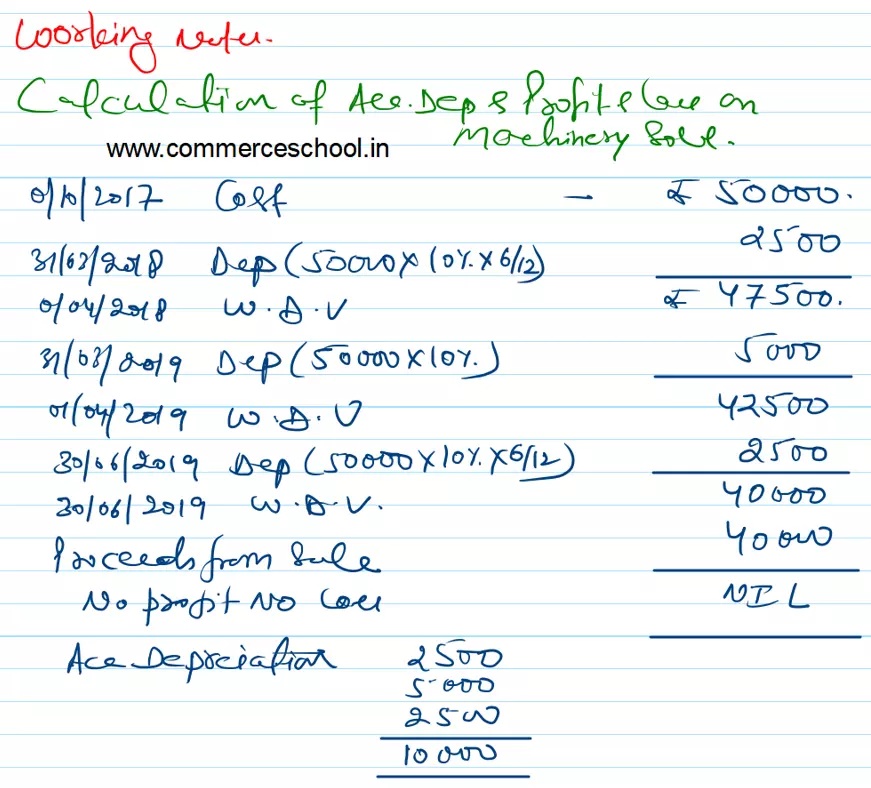 Working Notes.
Calculation of Acc. Dep & Profit & Loss on
Machinery Sold.
www.commerceschool.in
01/10/2017 Cost - ₹ 50000.
31/03/2018 Dep (50000 x 10% x 6/12) 2500
01/04/2018 W.D.V ₹ 47500.
31/03/2019 Dep (50000 x 10%.) 5000
01/04/2019 W.D.V 42500
30/06/2019 Dep (50000 x 10% x 6/12) 2500
30/06/2019 W.D.V. 40000
Proceeds from Sale 40000
No profit No Loss NIL
Acc Depreciation 2500
5000
2500
10000